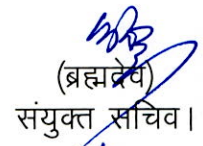 (ब्रह्मदेव)
संयुक्त सचिव।